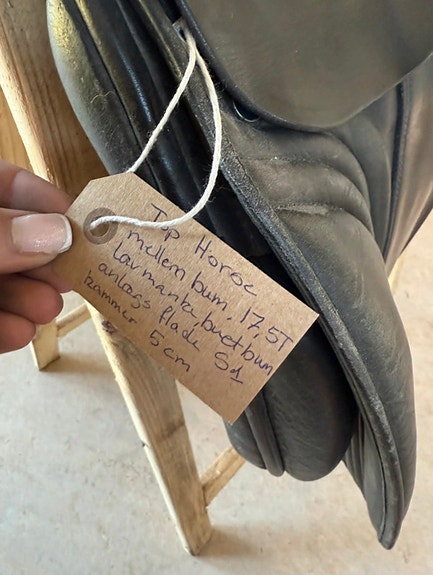 Top Horse
mellem bum. 17,5T
lav manke buet bum
anlægs flade S1
kammer 5cm